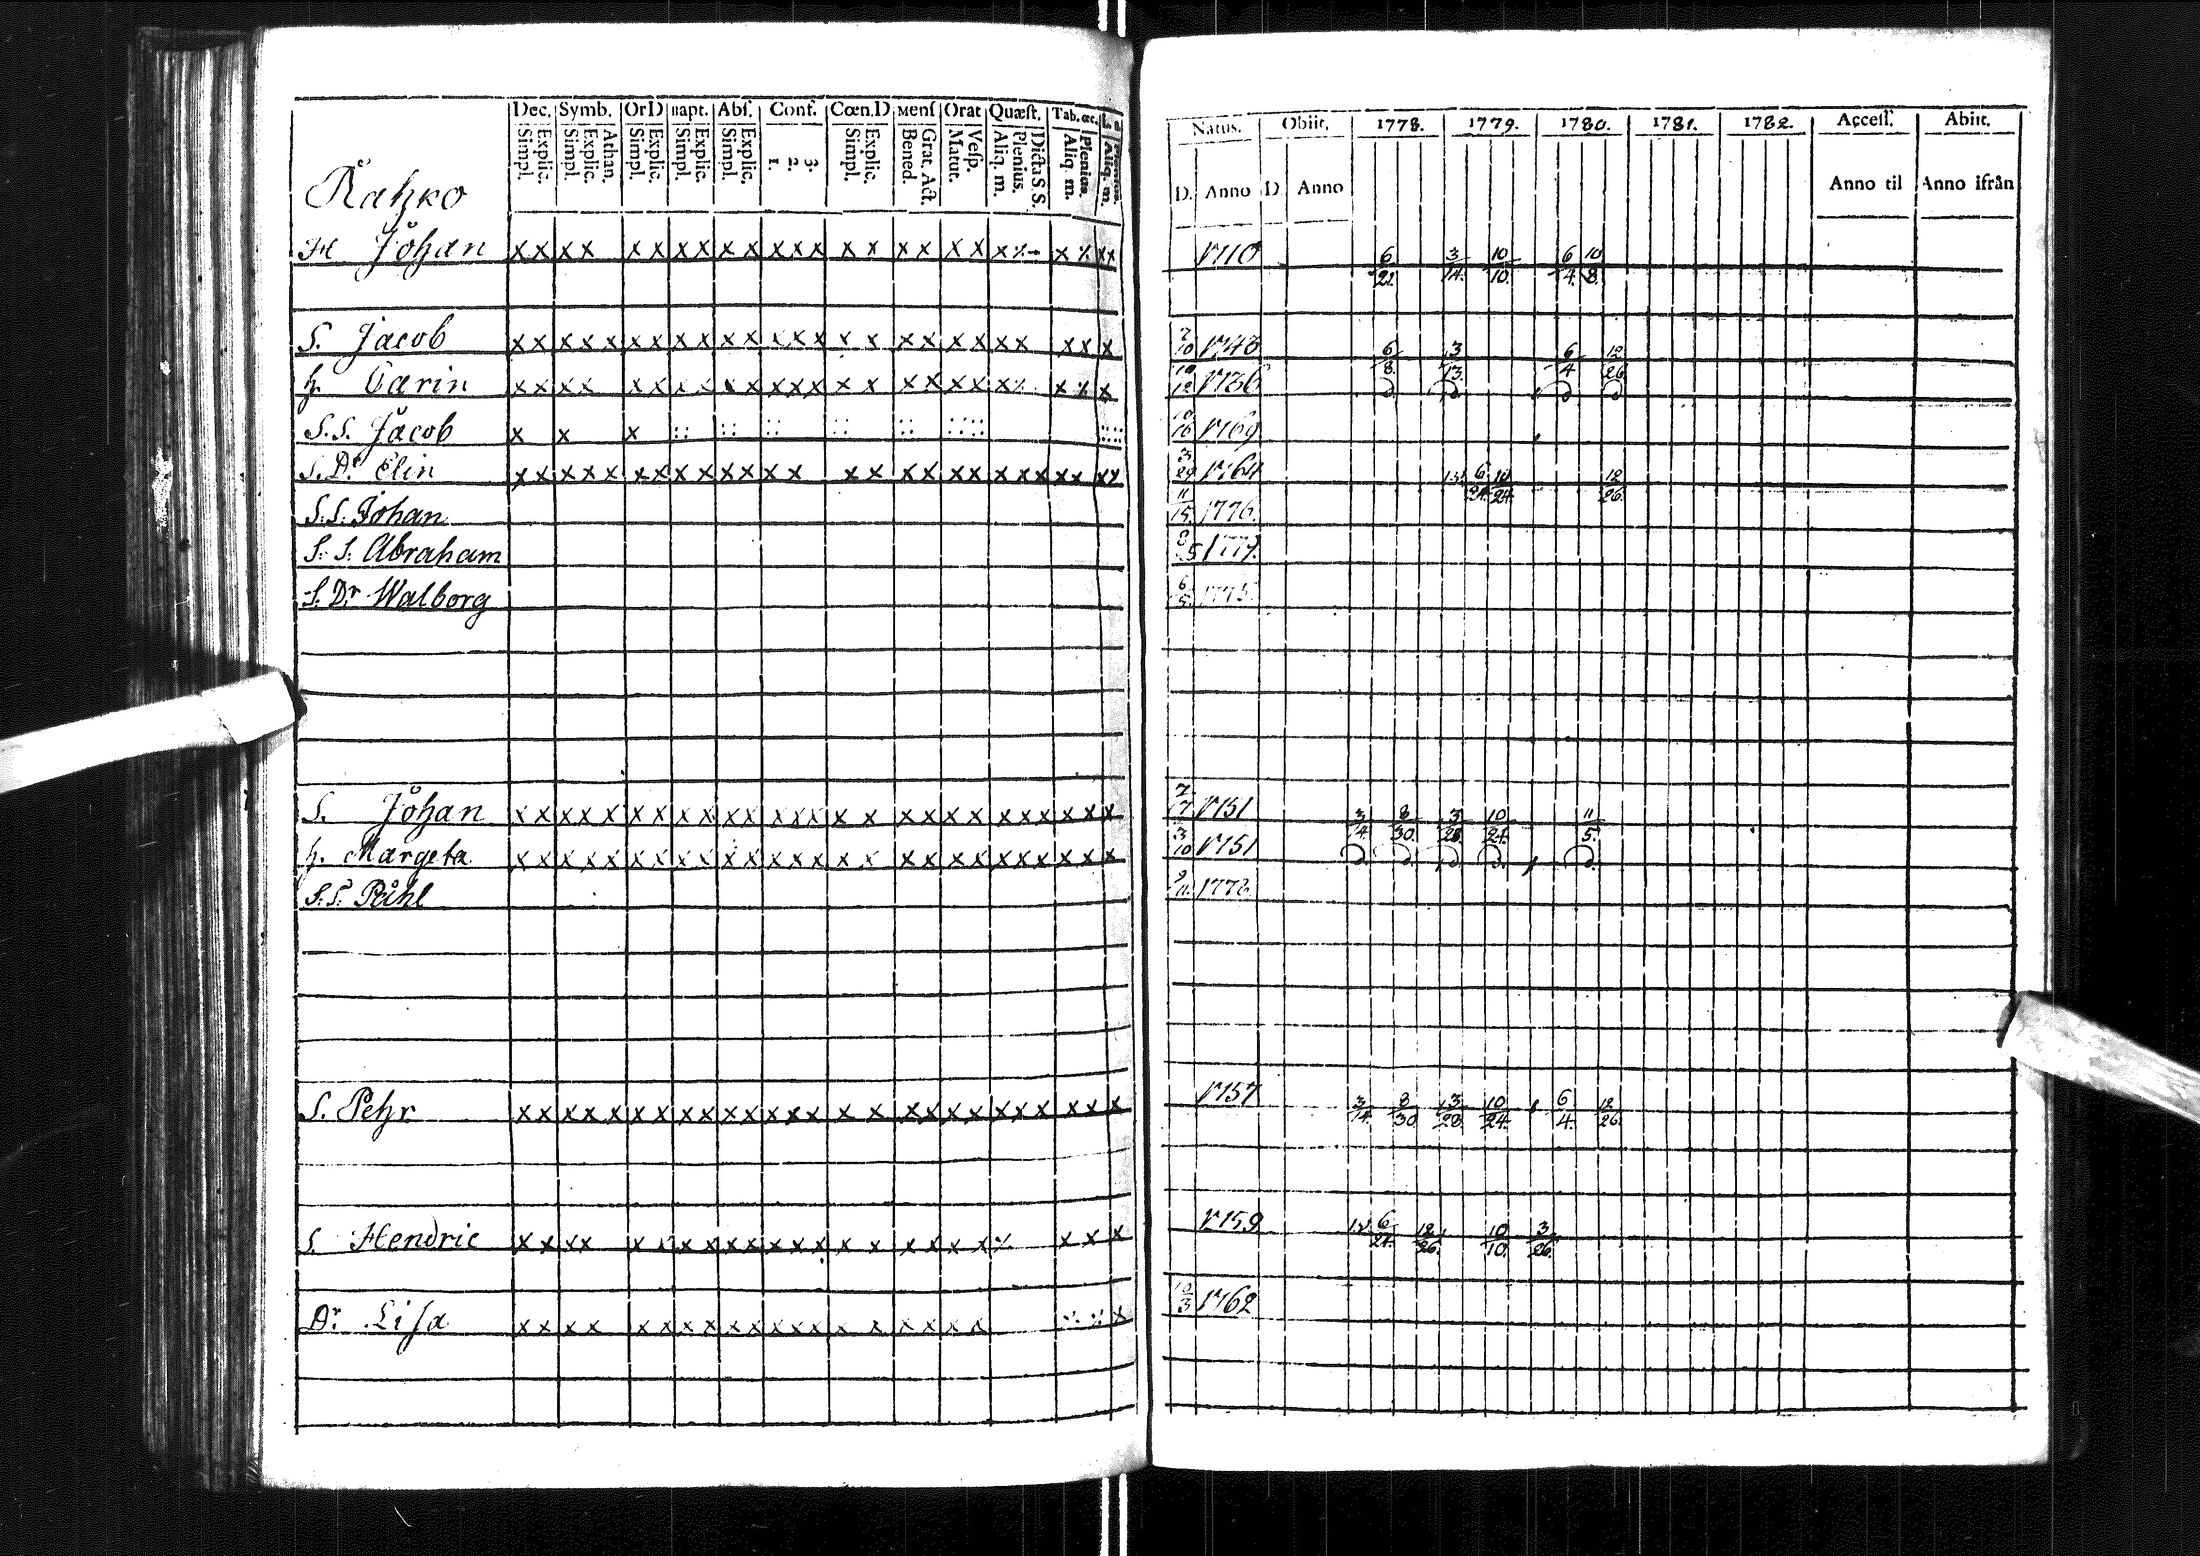 Dec. Symb. OrD Bapt. Abſ. Conf. Cœn.D Menſ Orat Quæſt. Tab. œc.
Explic. Simpl. Athan. Explic. Simpl. Explic. Simpl. Explic. Simpl. Explic. Simpl. 3. 2. 1. Explic. Simpl. Grat. Act. Bened. Veſp. Matut. Dicta S.S. Plenius. Aliq. m. Plenius. Aliq. m. Aliq. m.
Natus. Obiit. 1778. 1779. 1780. 1781. 1782. Acceſſ. Abiit.
D. Anno D Anno Anno til Anno ifrån
Johan x x x x x x x x x x x x x x x x x x x 1710 6/21. 3/14. 10/10. 6/4. 10/8.
S. Jacob x x x x x x x x x x x x x x x x x x x x x x x x 6/8. 3/13. 6/4 12/26
h. Carin x x x x x x x x x x x x x x x x x x x x x 1736
S.S. Jacob x x x 1769
S. Dr. Elin x x x x x x x x x x x x x x x x x x x x x x x x x 3/29 1764 6/24 10/24. 12/26.
S.S. Johan 11/15. 1776.
S. S. Abraham 1779.
S. Dr Walborg 6/5. 1775.
S. Johan x x x x x x x x x x x x x x x x x x x x x x x x x 1751 3/14. 8/30. 3/28. 10/24. 11/5.
h. Margeta x x x x x x x x x x x x x x x x x x x x x x x x x 3/10 1751
S.S. Påhl
S. Pehr x x x x x x x x x x x x x x x x x x x x x x x x x 1757 3/14. 8/30 3/28 10/24. 6/4. 12/26.
S. Hendric x x x x x x x x x x x x x x x x x x x x x 1759 6/24. 12/26. 10/10. 3/26.
Dr. Liſa x x x x x x x x x x x x x x x x x x x 1762